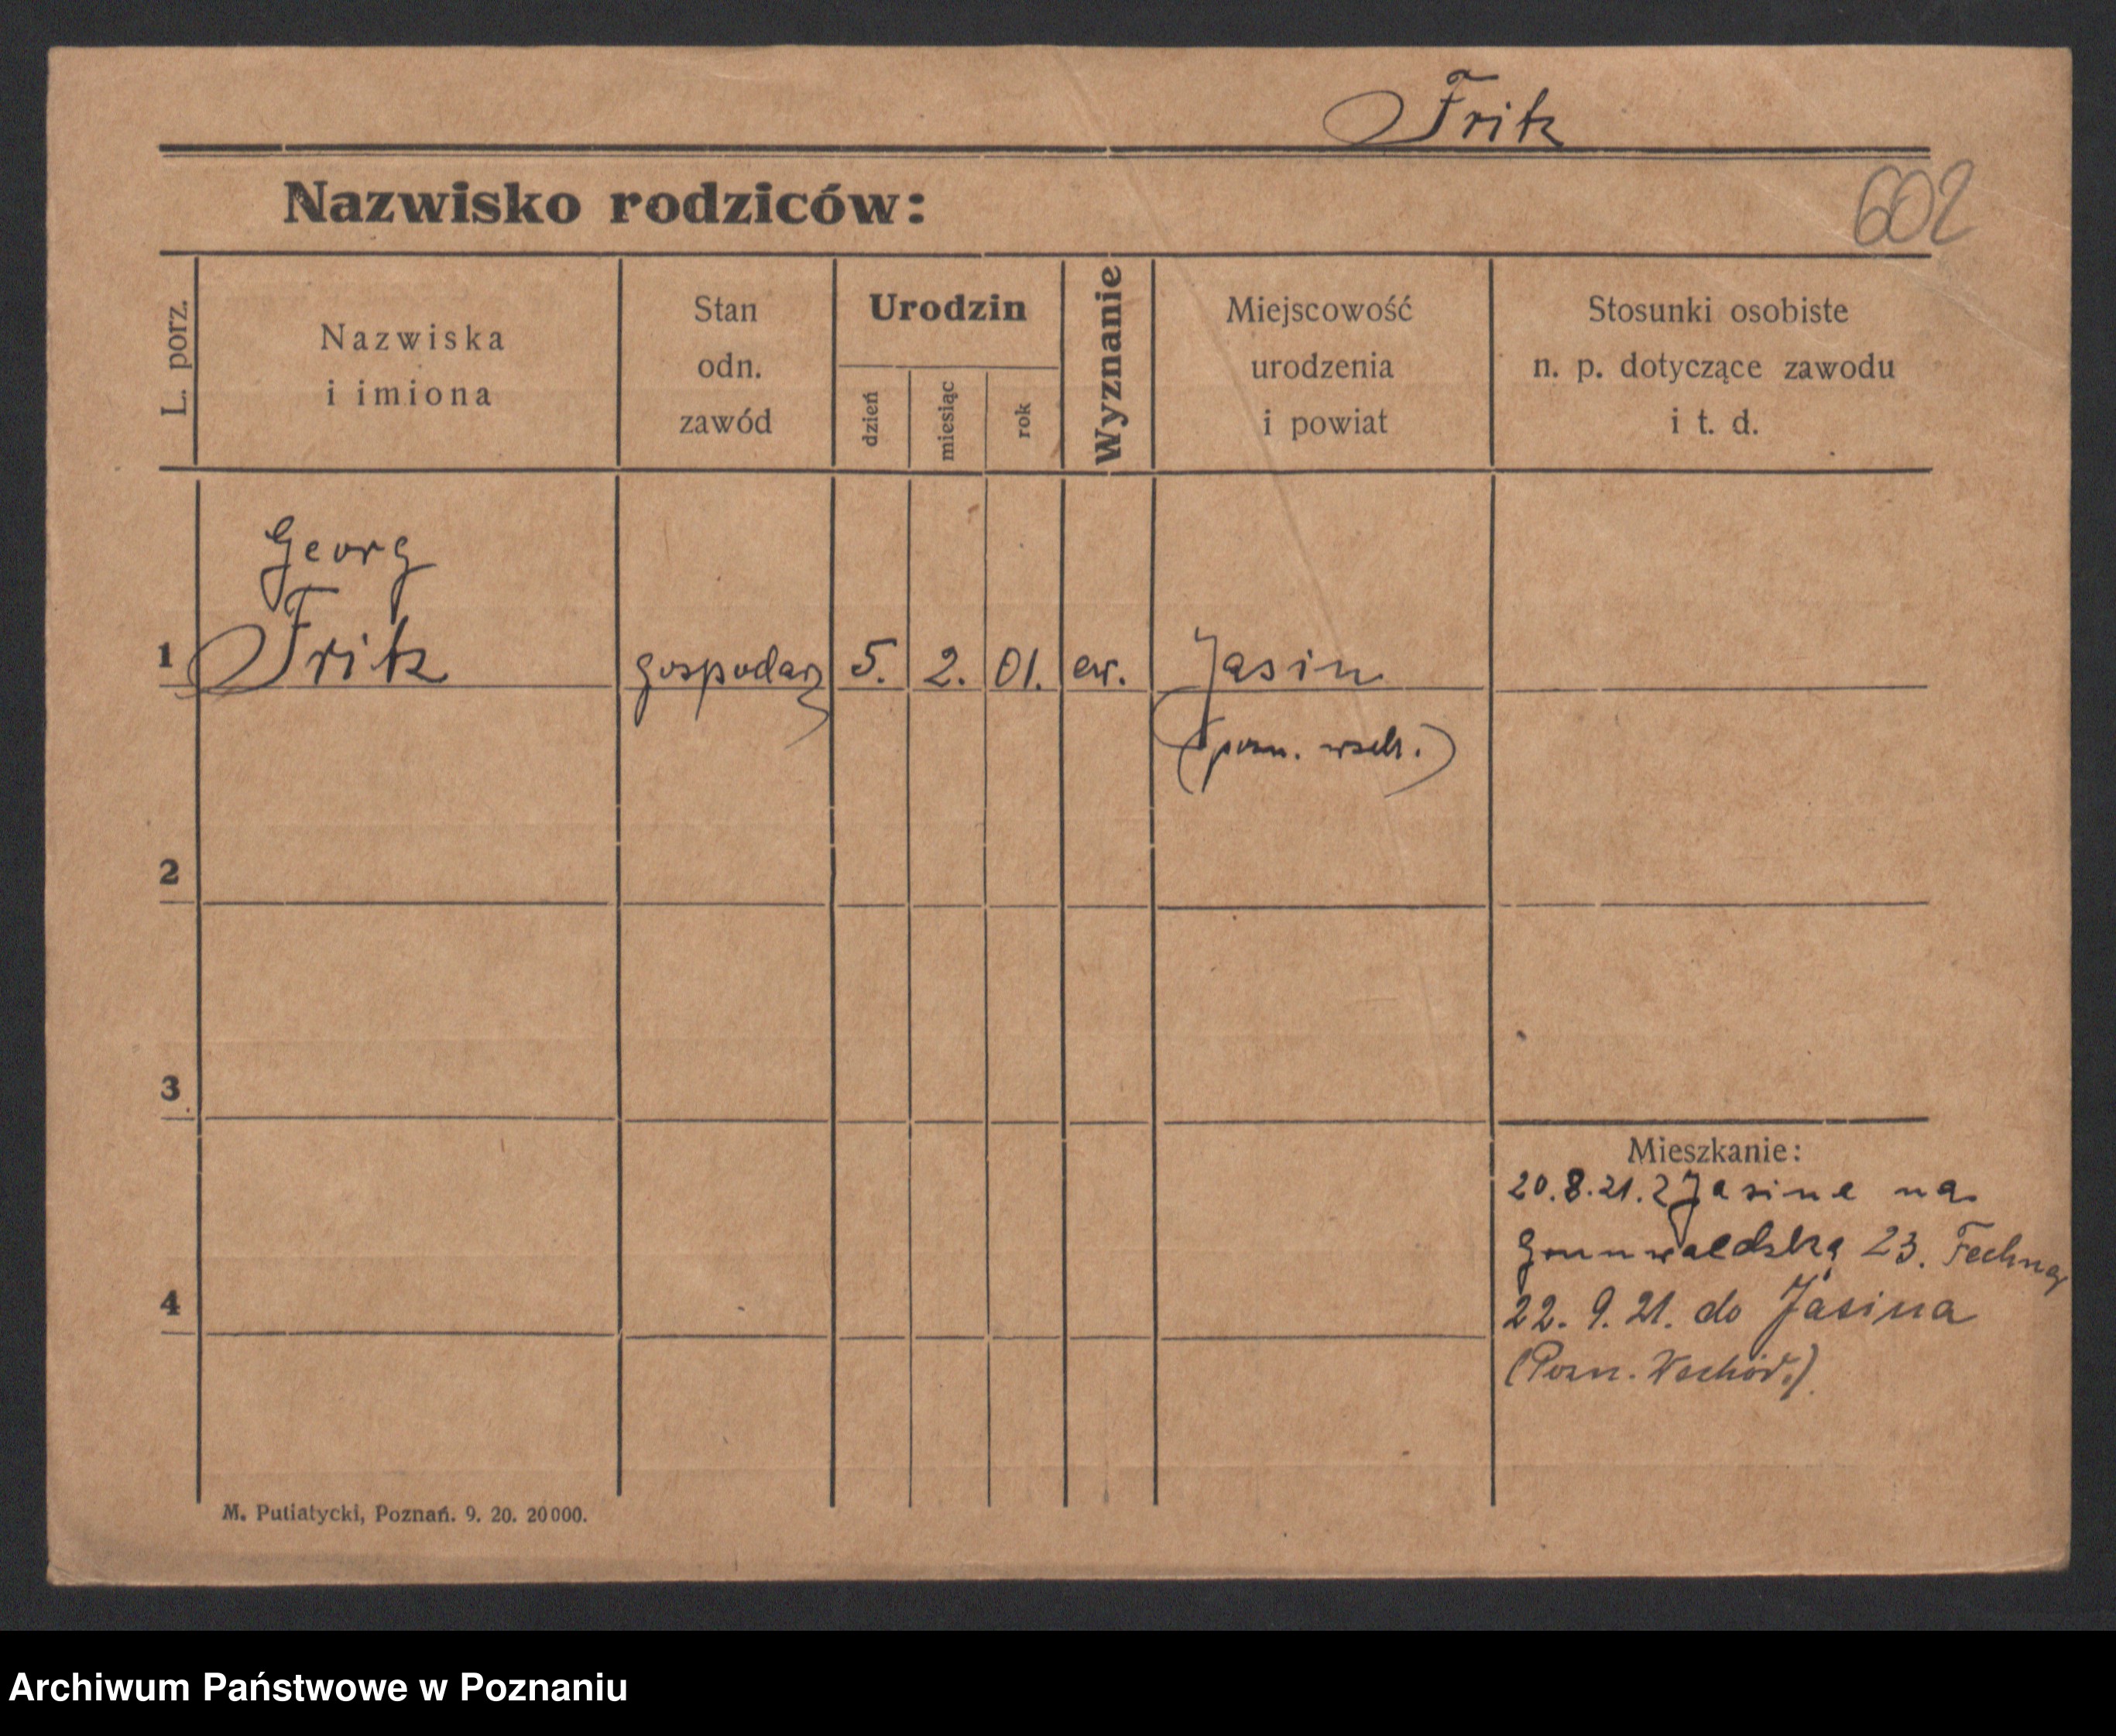 Fritz
Nazwisko rodziców:
602
L. porz.
Nazwiska
i imiona
Stan
odn.
zawód
Urodzin
dzień
miesiąc
rok
Wyznanie
Miejscowość
urodzenia
i powiat
Stosunki osobiste
n. p. dotyczące zawodu
i t. d.
Georg
1 Fritz gospodarz 5. 2. 01. ew. Jasin
(pozn. wsch.)
2
3
Mieszkanie:
20.8.21. z Jasina na
Grunwaldską 23.
4
22. 9. 21. do Jasina
(Pozn. Wschód.)
M. Putiatycki, Poznań. 9. 20. 20000.
Archiwum Państwowe w Poznaniu